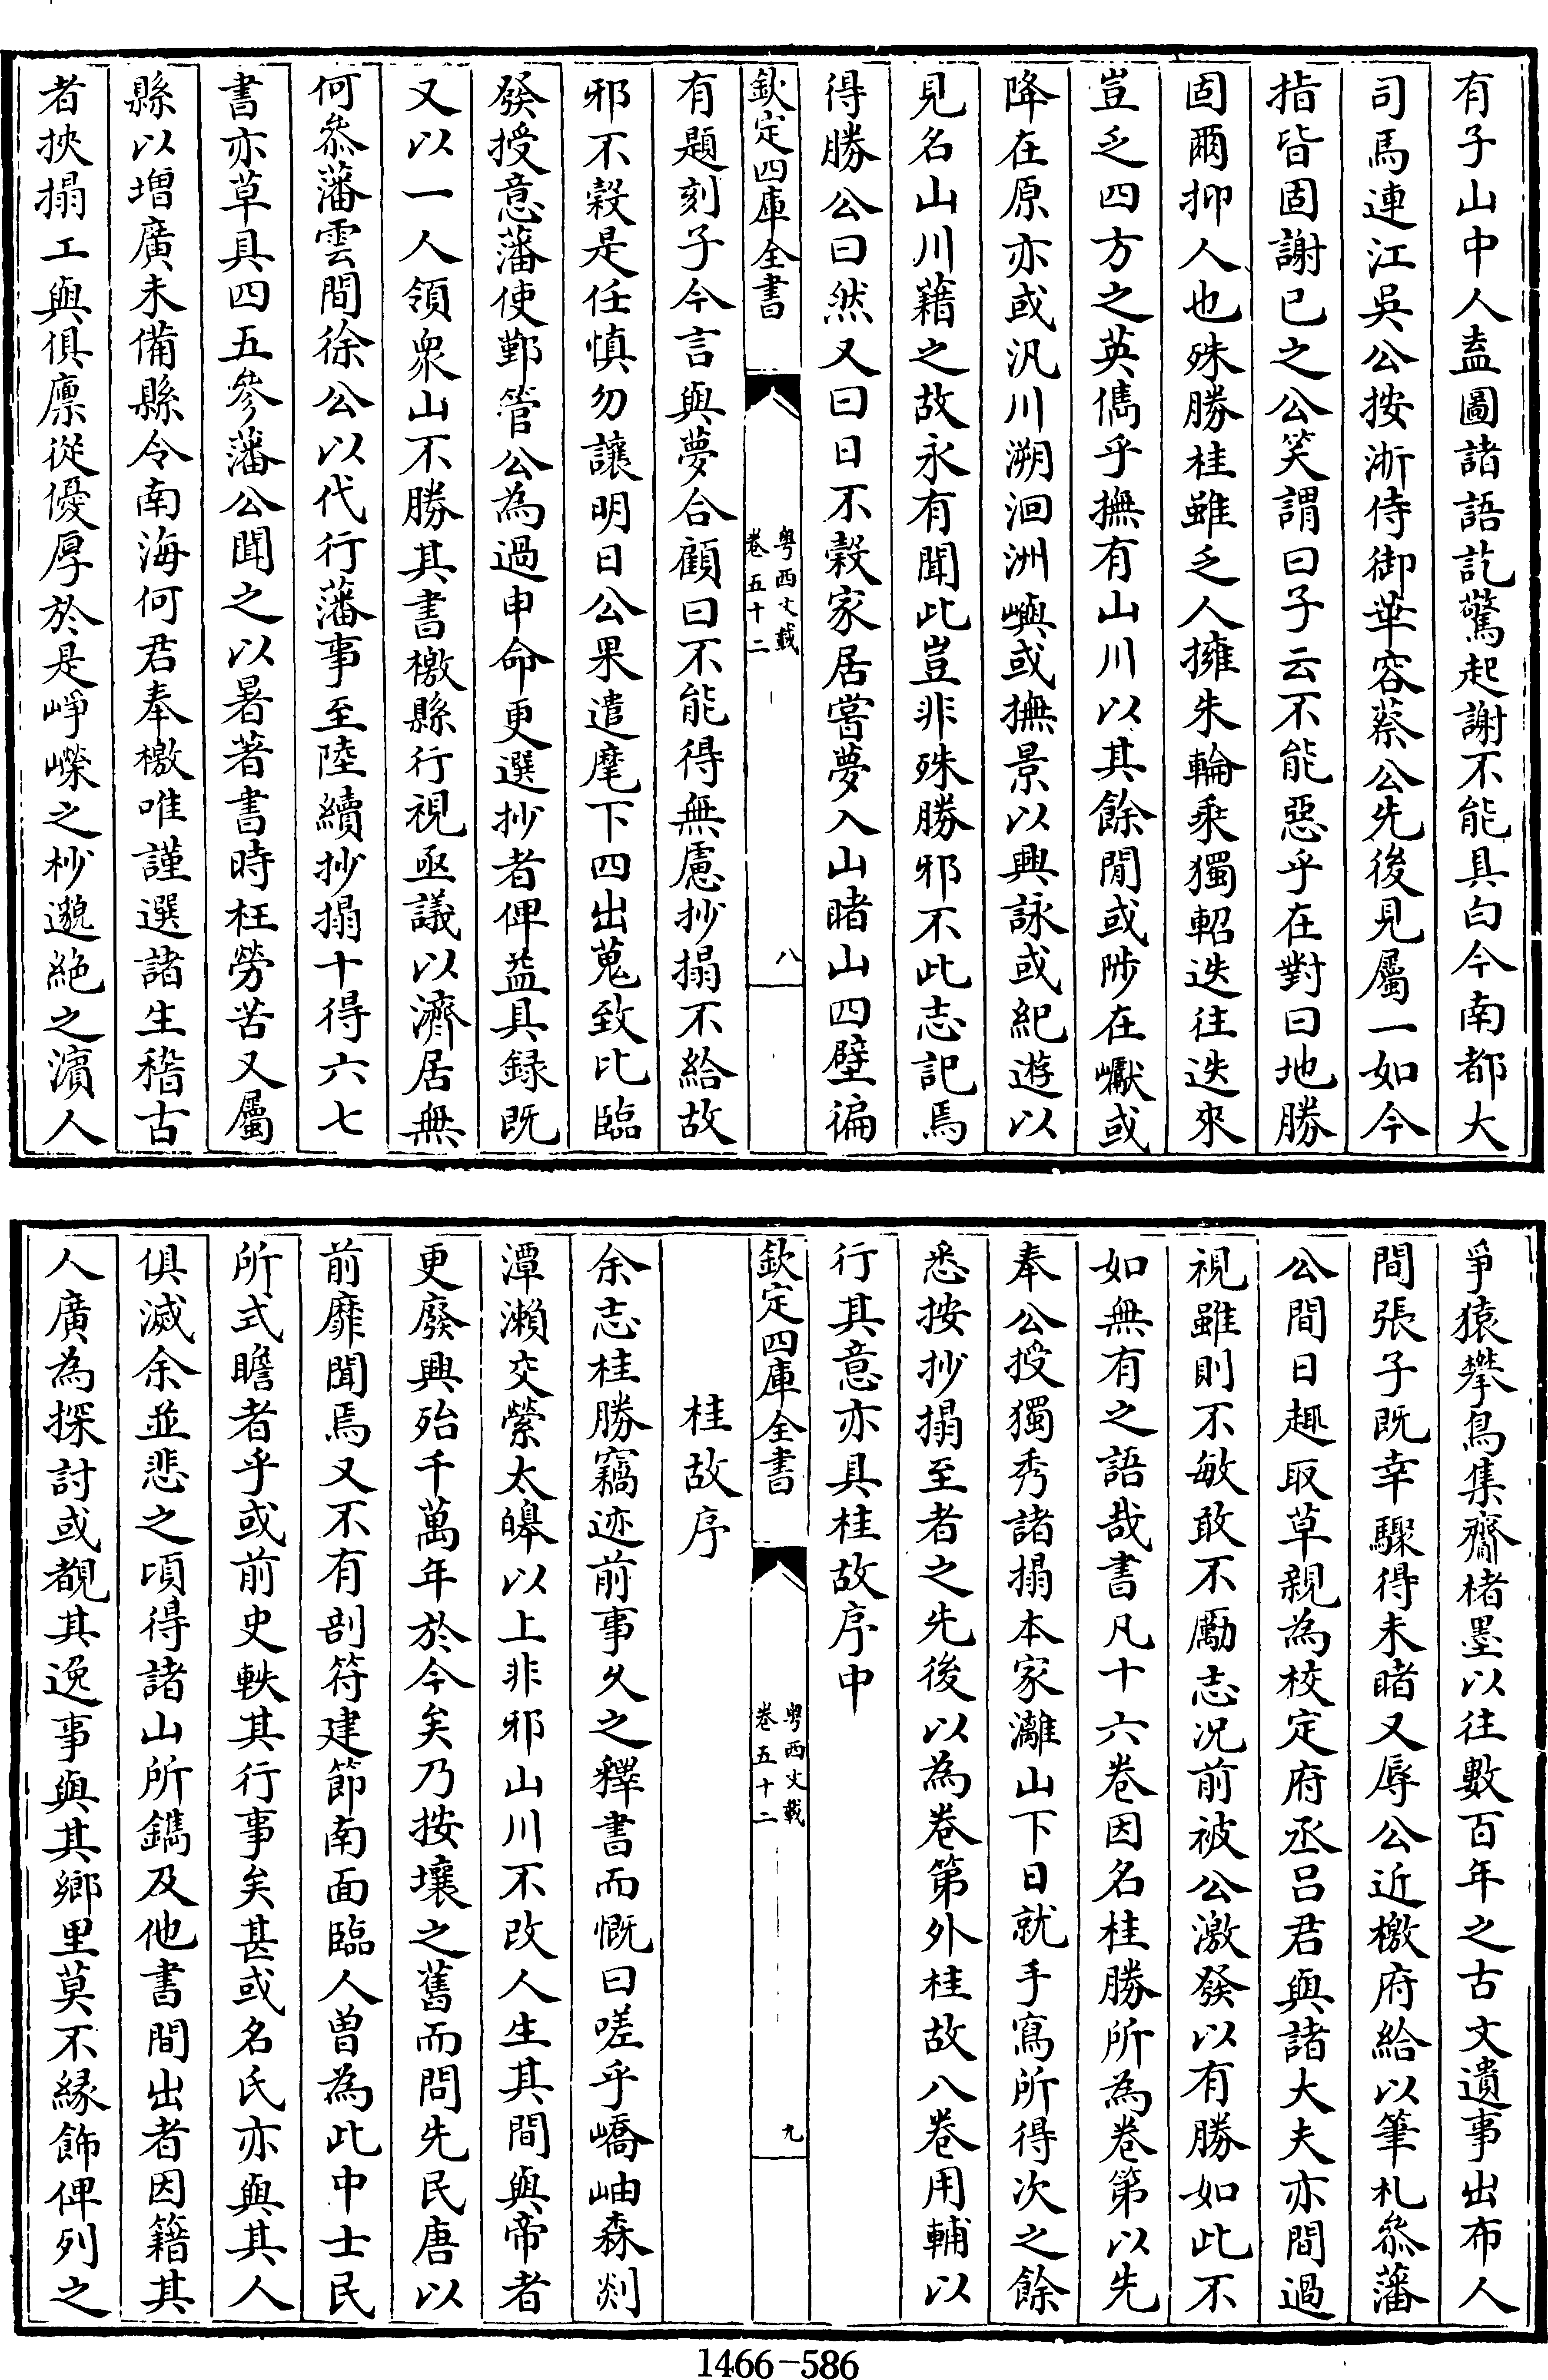 有子山中人盍圖諸語訖驚起謝不能具白今南都大
司馬連江吳公按浙侍御華容蔡公先後見屬一如今
指皆固謝已之公笑謂曰子云不能惡乎在對曰地勝
固爾抑人也殊勝桂雖乏人擁朱輪乘獨軺迭往迭來
豈乏四方之英儁乎撫有山川以其餘閒或陟在巘或
降在原亦或汎川溯洄洲嶼或撫景以興詠或紀遊以
見名山川籍之故永有聞此豈非殊勝邪不此志記焉
得勝公曰然又曰日不穀家居嘗夢入山睹山四壁徧
欽定四庫全書
粤西文載
卷五十二
八
有題刻子今言與夢合顧曰不能得無慮抄搨不給故
邪不穀是任慎勿讓明日公果遣麾下四出蒐致比臨
發授意藩使鄞管公為過申命更選抄者俾益具録既
又以一人領衆山不勝其書檄縣行視亟議以濟居無
何叅藩雲間徐公以代行藩事至陸續抄搨十得六七
書亦草具四五參藩公聞之以暑著書時枉勞苦又屬
縣以增廣未備縣令南海何君奉檄唯謹選諸生稽古
者挾搨工與俱廩從優厚於是崢嶸之杪邈絶之濵人
爭猿攀鳥集齎楮墨以往數百年之古文遺事出布人
間張子既幸驟得未睹又辱公近檄府給以筆札叅藩
公間日趣取草親為校定府丞呂君與諸大夫亦間過
視雖則不敏敢不勵志况前被公激發以有勝如此不
如無有之語哉書凡十六卷因名桂勝所為卷第以先
奉公授獨秀諸搨本家灕山下日就手寫所得次之餘
悉按抄搨至者之先後以為卷第外桂故八卷用輔以
行其意亦具桂故序中
欽定四庫全書
粤西文載
卷五十二
九
桂故序
余志桂勝竊迹前事乆之釋書而慨曰嗟乎嶠岫森剡
潭瀨交縈太皞以上非邪山川不改人生其間與帝者
更廢興殆千萬年於今矣乃按壤之舊而問先民唐以
前靡聞焉又不有剖符建節南面臨人曾為此中士民
所式瞻者乎或前史軼其行事矣甚或名氏亦與其人
俱滅余並悲之頃得諸山所鐫及他書間出者因籍其
人廣為探討或覩其逸事與其鄉里莫不緣飾俾列之
1466-586